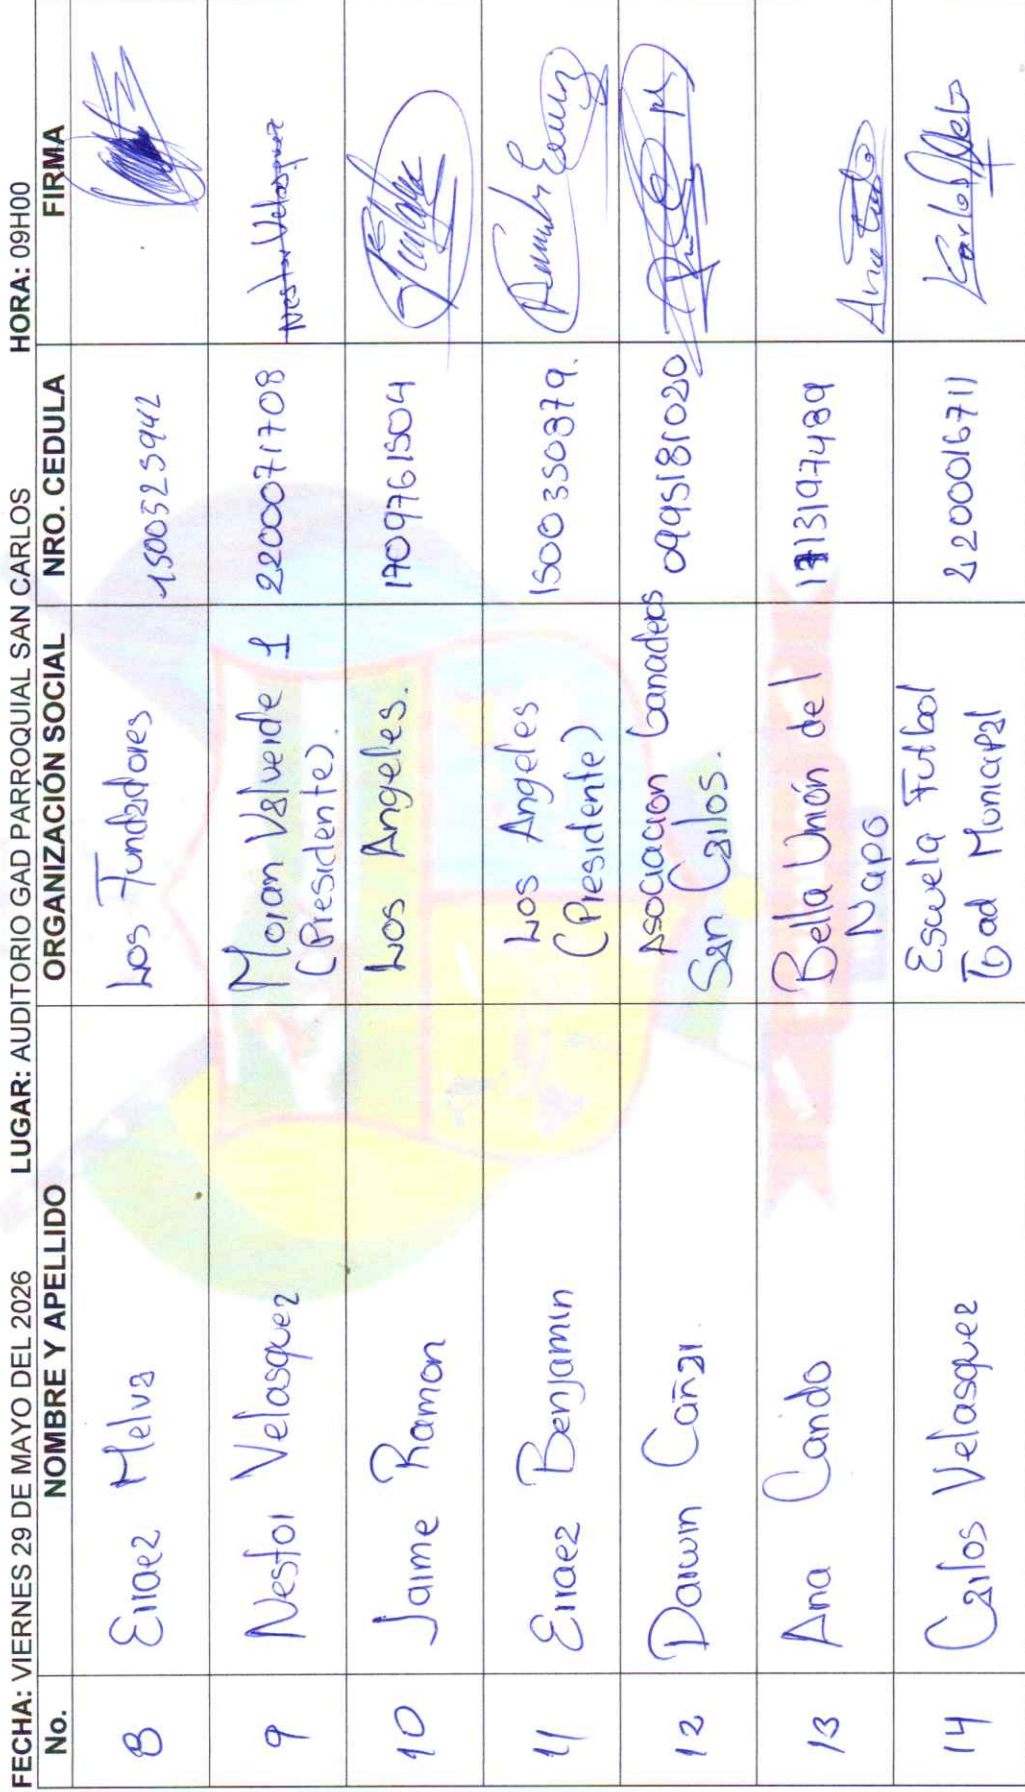 FECHA: VIERNES 29 DE MAYO DEL 2026 LUGAR: AUDITORIO GAD PARROQUIAL SAN CARLOS HORA: 09H00
No. NOMBRE Y APELLIDO ORGANIZACIÓN SOCIAL NRO. CEDULA FIRMA
8 Erraez Melva Los Fundadores 1500523942
9 Nestor Velasquez Moran Valverde 1 2200071708 Nestor Velasquez
(Presidente).
10 Jaime Ramon Los Angeles. 1709761504
11 Erraez Benjamin Los Angeles 1500350379.
(Presidente)
12 Darwin Cañar. Asociacion Ganaderos 0995181020
San Carlos.
13 Ana Cando Bella Unión del 1713197489
Napo
14 Carlos Velasquez Escuela Futbol 2200016711
Gad Municipal